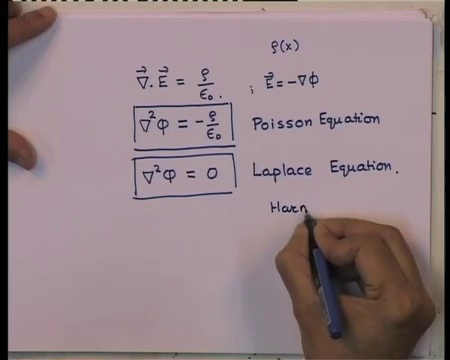 ρ(x)
∇⃗.E⃗ = ρ/ε₀. ; E⃗ = -∇Φ
∇²Φ = -ρ/ε₀ Poisson Equation
∇²Φ = 0 Laplace Equation.
Harn